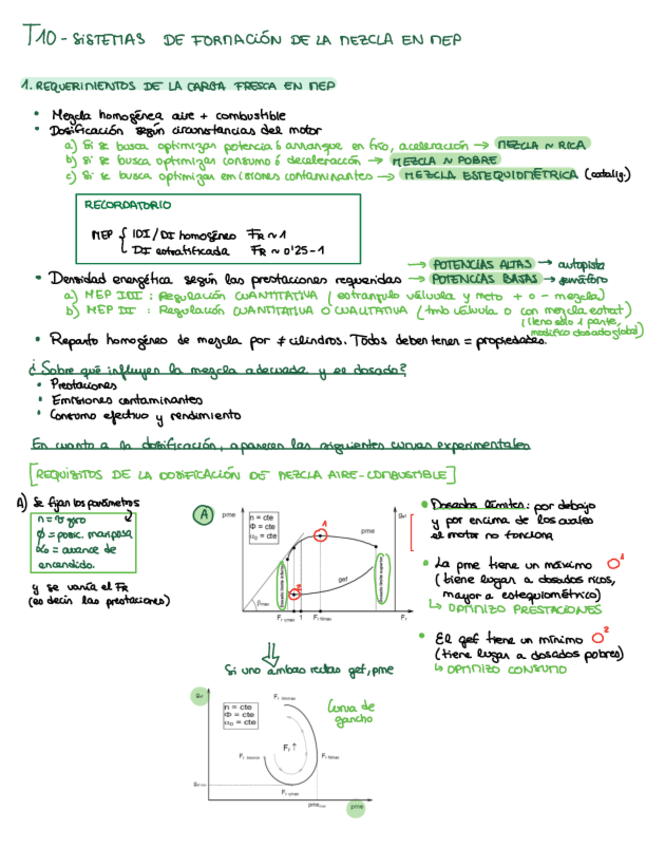 T10 - SISTEMAS DE FORMACIÓN DE LA MEZCLA EN MEP
1. REQUERIMIENTOS DE LA CARGA FRESCA EN MEP
• Mezcla homogénea aire + combustible
• Dosificación según circunstancias del motor
a) Si se busca optimizar potencia ó arranque en frío, aceleración → MEZCLA ~ RICA
b) Si se busca optimizar consumo ó deceleracción → MEZCLA ~ POBRE
c) Si se busca optimizar emisiones contaminantes → MEZCLA ESTEQUIOMÉTRICA (catalig.)
RECORDATORIO
MEP { IDI / DI homogéneo FR ~ 1
DI estratificada FR ~ 0'25 - 1
• Densidad energética según las prestaciones requeridas → POTENCIAS ALTAS → autopista
→ POTENCIAS BAJAS → semáforo
a) MEP IDI : Regulación CUANTITATIVA ( estrangulo válvula y meto + o - mezcla)
b) MEP DI : Regulación CUANTITATIVA O CUALITATIVA ( tmb válvula o con mezcla estrat)
(lleno sólo 1 parte, modifico dosado global)
• Reparto homogéneo de mezcla por ≠ cilindros. Todos deben tener = propiedades.
¿Sobre qué influyen la mezcla adecuada y es dosado?
• Prestaciones
• Emisiones contaminantes
• Consumo efectivo y rendimiento
En cuanto a la dosificación, aparecen las siguientes curvas experimentales
[REQUISITOS DE LA DOSIFICACIÓN DE MEZCLA AIRE-COMBUSTIBLE]
A) Se fijan los parámetros
n = v giro
φ = posic. mariposa
α0 = avance de
encendido.
y se varía el FR
(es decir las prestaciones)
A
pme
n = cte
Φ = cte
α0 = cte
1
gef
pme
gef
Dosado límite inferior
Dosado límite superior
2
βmax
Fr ηmax 1 Fr Nmax Fr
• Dosados límites: por debajo
y por encima de los cuales
el motor no funciona
• La pme tiene un máximo O1
(tiene lugar a dosados ricos,
mayor a estequiométrico)
↳ OPTIMIZO PRESTACIONES
• El gef tiene un mínimo O2
(tiene lugar a dosados pobres)
↳ OPTIMIZO CONSUMO
Si uno ambas rectas gef, pme
gef
n = cte
Φ = cte
α0 = cte
Curva de
gancho
Fr ↑
Fr Nmax
Fr ηmax
pme